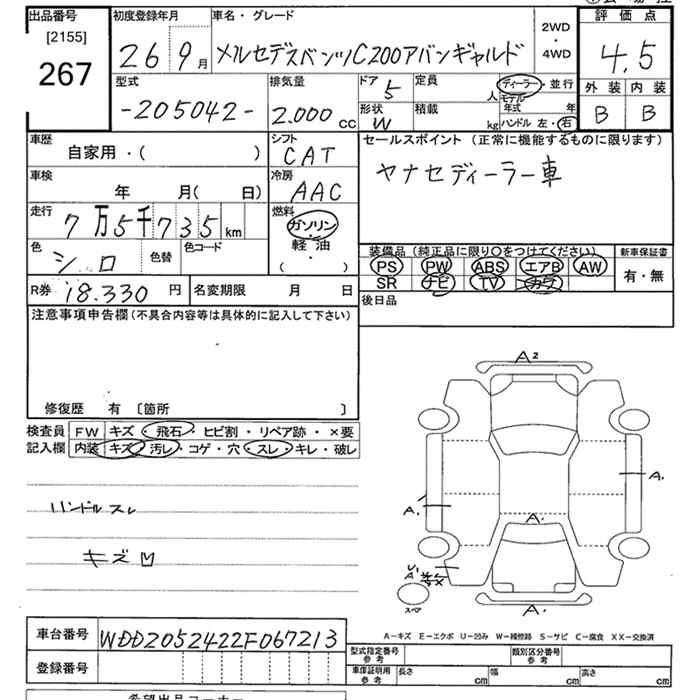 出品番号 初度登録年月 車名・グレード 2WD・4WD 評価点
[2155]
267 26 9月 メルセデスベンツC200アバンギャルド 4.5
型式 排気量 ドア 5 定員 人 ディーラー・並行 外装 内装
-205042- 2.000cc 形状 W 積載 kg モデル年式 年 B B
ハンドル 左・右
車歴 シフト セールスポイント(正常に機能するものに限ります)
自家用・( ) CAT ヤナセディーラー車
車検 冷房
年 月( 日) AAC
走行 7万5千735km 燃料
ガソリン・軽油
( )
色 シロ 色替 色コード
装備品(純正品に限り○をつけてください) 新車保証書
PS PW ABS エアB AW 有・無
SR ナビ TV カワ
R券 18.330円 名変期限 月 日 後日品
注意事項申告欄(不具合内容等は具体的に記入して下さい)
修復歴 有 〔箇所 〕
検査員 FW キズ・飛石・ヒビ割・リペア跡・×要
記入欄 内装 キズ・汚レ・コゲ・穴・スレ・キレ・破レ
ハンドル スレ
キズ
A2
A1
A1
A1
U1
A
スペア
A1
A−キズ E−エクボ U−凹み W−補修跡 S−サビ C−腐食 XX−交換済
車台番号 WDD2052422F067213
登録番号
型式指定番号 参考 類別区分番号 参考
車庫証明用 参考 長さ cm 幅 cm 高さ cm
希望出品コーナー